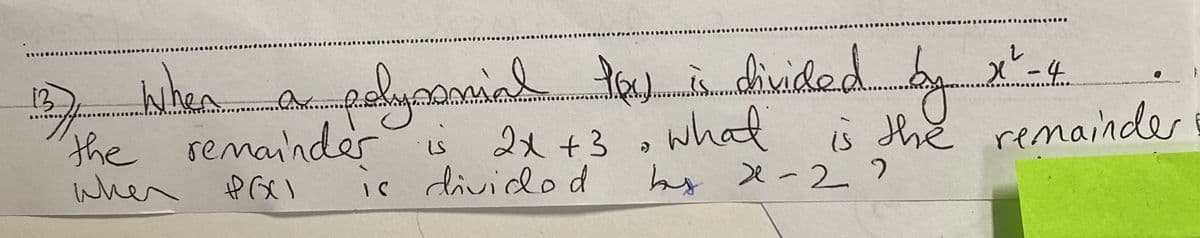 13) When a polynomial P(x) is divided by x²-4.
the remainder is 2x +3, what is the remainder
when P(x) is divided by x-2?